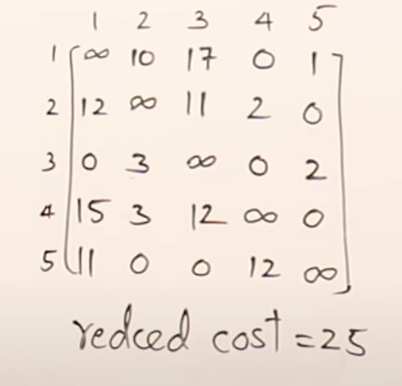 1 2 3 4 5
1 ∞ 10 17 0 1
2 12 ∞ 11 2 0
3 0 3 ∞ 0 2
4 15 3 12 ∞ 0
5 11 0 0 12 ∞
redced cost = 25